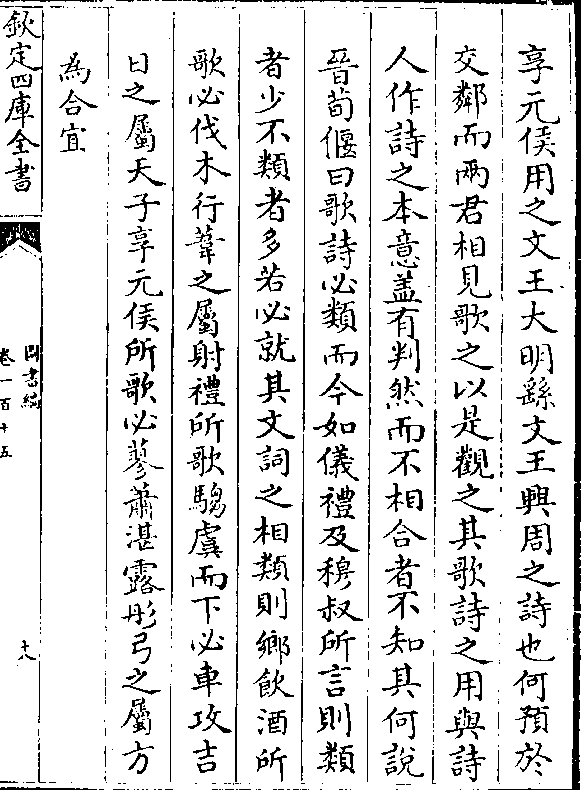 享元侯用之文王大明緜文王興周之詩也何預於
交鄰而兩君相見歌之以是觀之其歌詩之用與詩
人作詩之本意盖有判然而不相合者不知其何說
晉荀偃曰歌詩必類而今如儀禮及穆叔所言則類
者少不類者多若必就其文詞之相類則鄉飲酒所
歌必伐木行葦之屬射禮所歌騶虞而下必車攻吉
日之屬天子享元侯所歌必蓼蕭湛露彤弓之屬方
為合宜
欽定四庫全書
圖書編
卷一百十五
十八